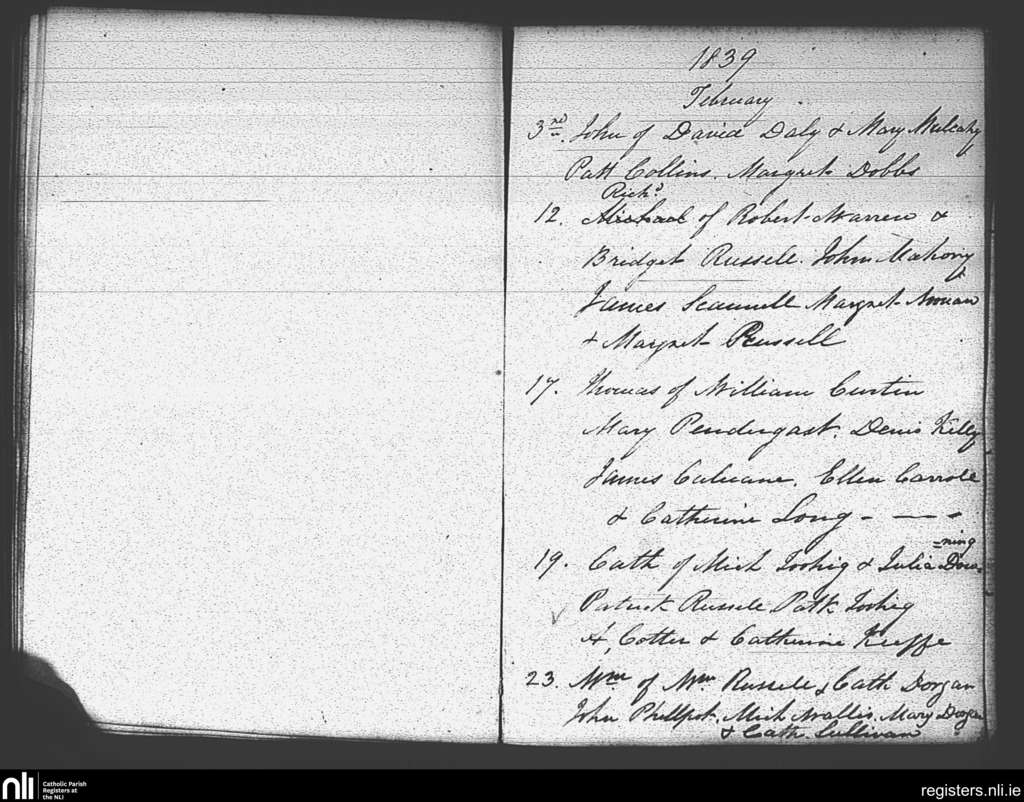 1839
February
3rd. John of David Daly & Mary Mulcahy
Patt Collins. Margret Dobbs
Richd.
12. Michael of Robert Warren &
Bridget Russell. John Mahony
James Scannell Margret
& Margret Russell
17. Thomas of William Curtin
Mary Pendergast. Denis Kelly
James Culnane. Ellen Carroll
& Catherine Long - — - -
-ning
19. Cath of Mich Toohig & Julia Dow-
Patrick Russell Patk Toohig
Cotter & Catherine Keeffe
23. Wm of Wm Russell & Cath Dorgan
John Phillpot. Mich Wallis. Mary Dorgan
& Cath. Sullivan
nli Catholic Parish
Registers at
the NLI
registers.nli.ie